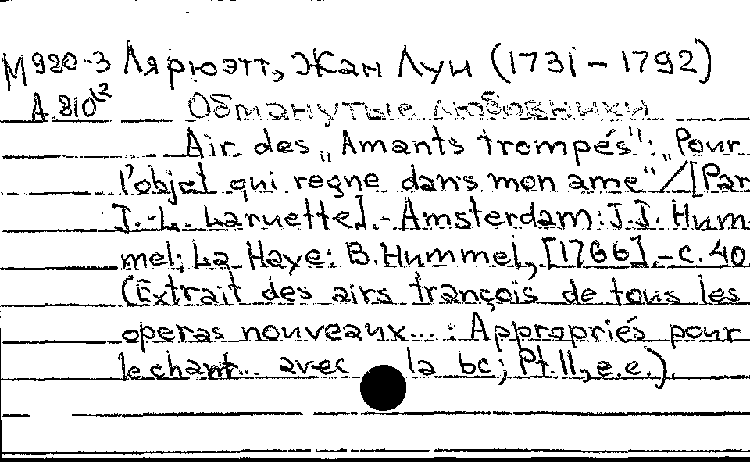 М 920-3 Лярюэтт, Жан Луи (1731 - 1792)
А 810 Обманутые любовники
Air des „Amants trompés": „Pour
l'objet qui regne dans mon ame" / [Par
J.-L. Laruette]. - Amsterdam: J.J. Hum-
mel; La Haye: B. Hummel, [1766]. - c. 40
(Extrait des airs françois de tous les
operas nouveaux...: Appropriés pour
le chant... avec la bc; Pt. II, e.e.).